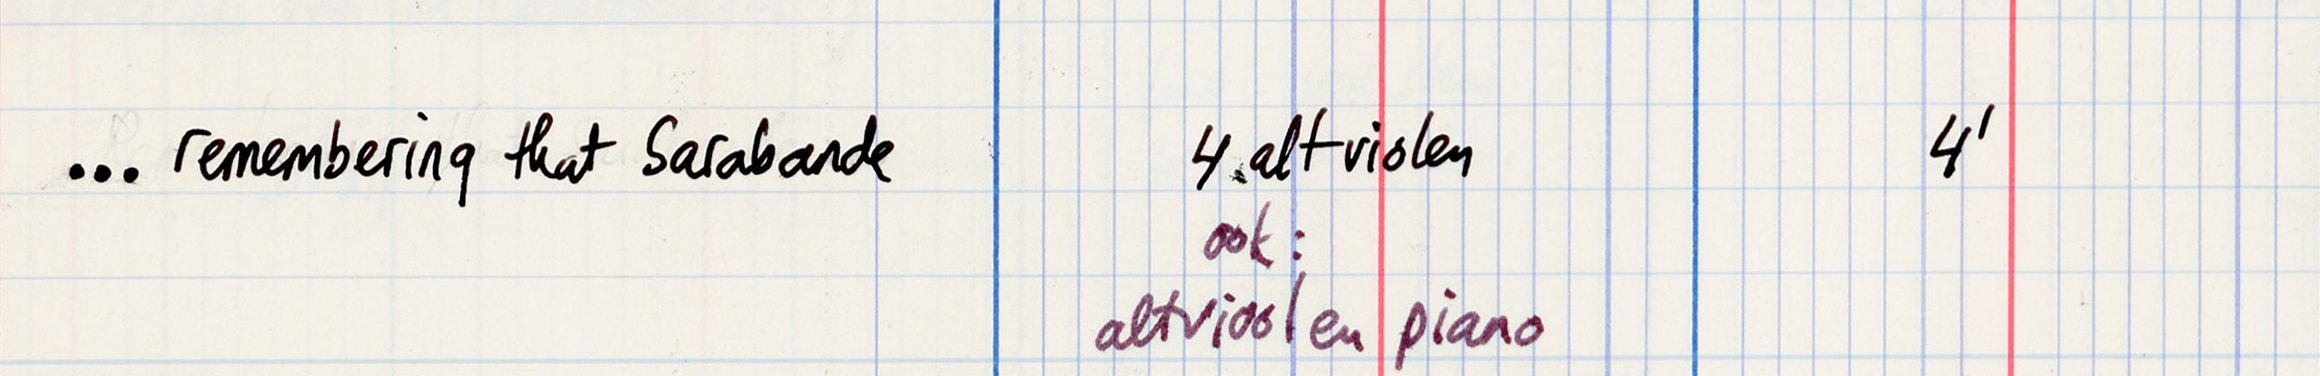 ... remembering that Sarabande 4 altviolen 4'
ook:
altviool en piano